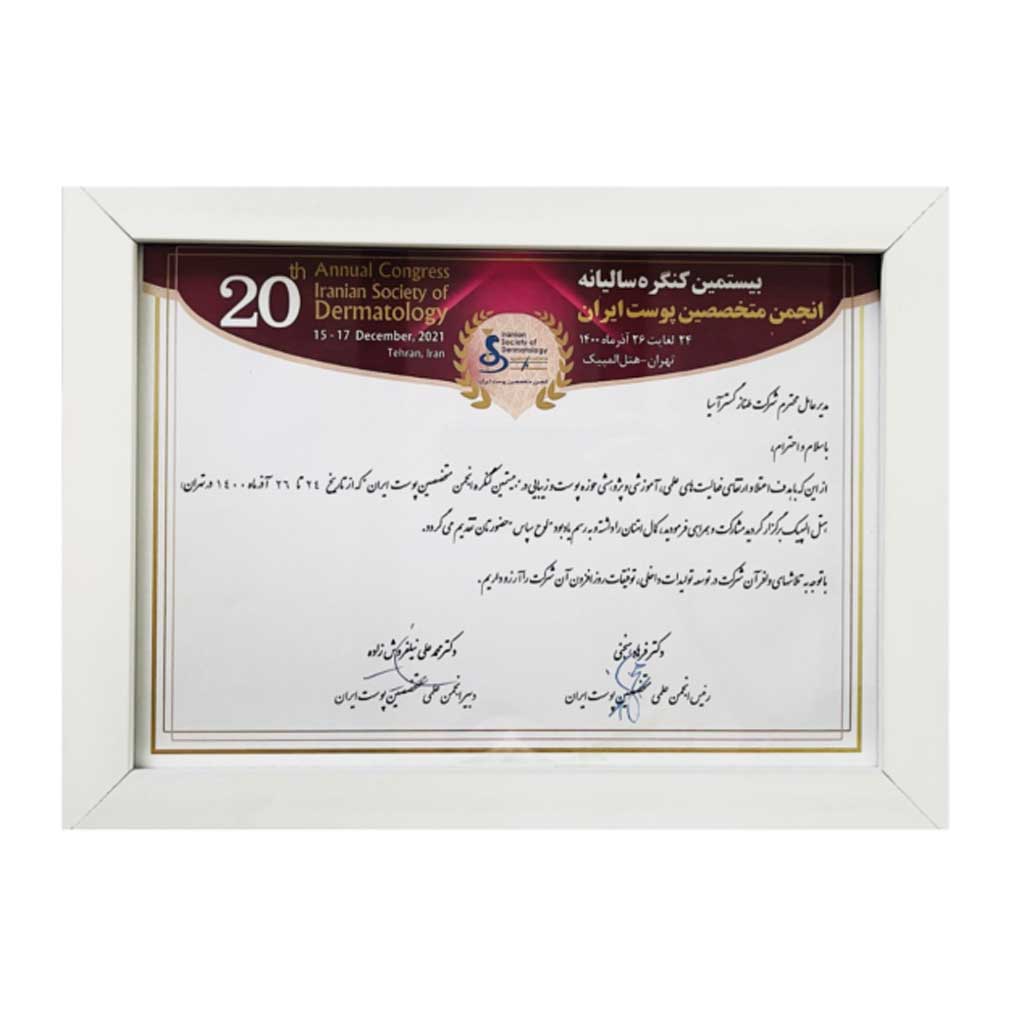 20th Annual Congress
Iranian Society of
Dermatology
15 - 17 December, 2021
Tehran, Iran
بیستمین کنگره سالیانه
انجمن متخصصین پوست ایران
۲۴ لغایت ۲۶ آذر ماه ۱۴۰۰
تهران-هتل المپیک
Iranian
Society of
Dermatology
انجمن متخصصین پوست ایران
مدیر عامل محترم شرکت طناز گستر آسیا
باسلام و احترام،
از این که با هدف اعتلا و ارتقای فعالیت های علمی، آموزشی و پژوهشی حوزه پوست و زیبایی در "بیستمین کنگره انجمن متخصصین پوست ایران" که از تاریخ ۲۴ تا ۲۶ آذرماه ۱۴۰۰ در تهران؛
هتل المپیک برگزار گردید مشارکت و همراهی فرمودید، کمال امتنان را داشته و به رسم یادبود "لوح سپاس" حضورتان تقدیم می گردد.
با توجه به تلاشهای وافر آن شرکت در توسعه تولیدات داخلی، توفیقات روزافزون آن شرکت را آرزو داریم.
دکتر فرهاد
رئیس انجمن علمی متخصصین پوست ایران
دکتر محمد علی نیلفروش زاده
دبیر انجمن علمی متخصصین پوست ایران